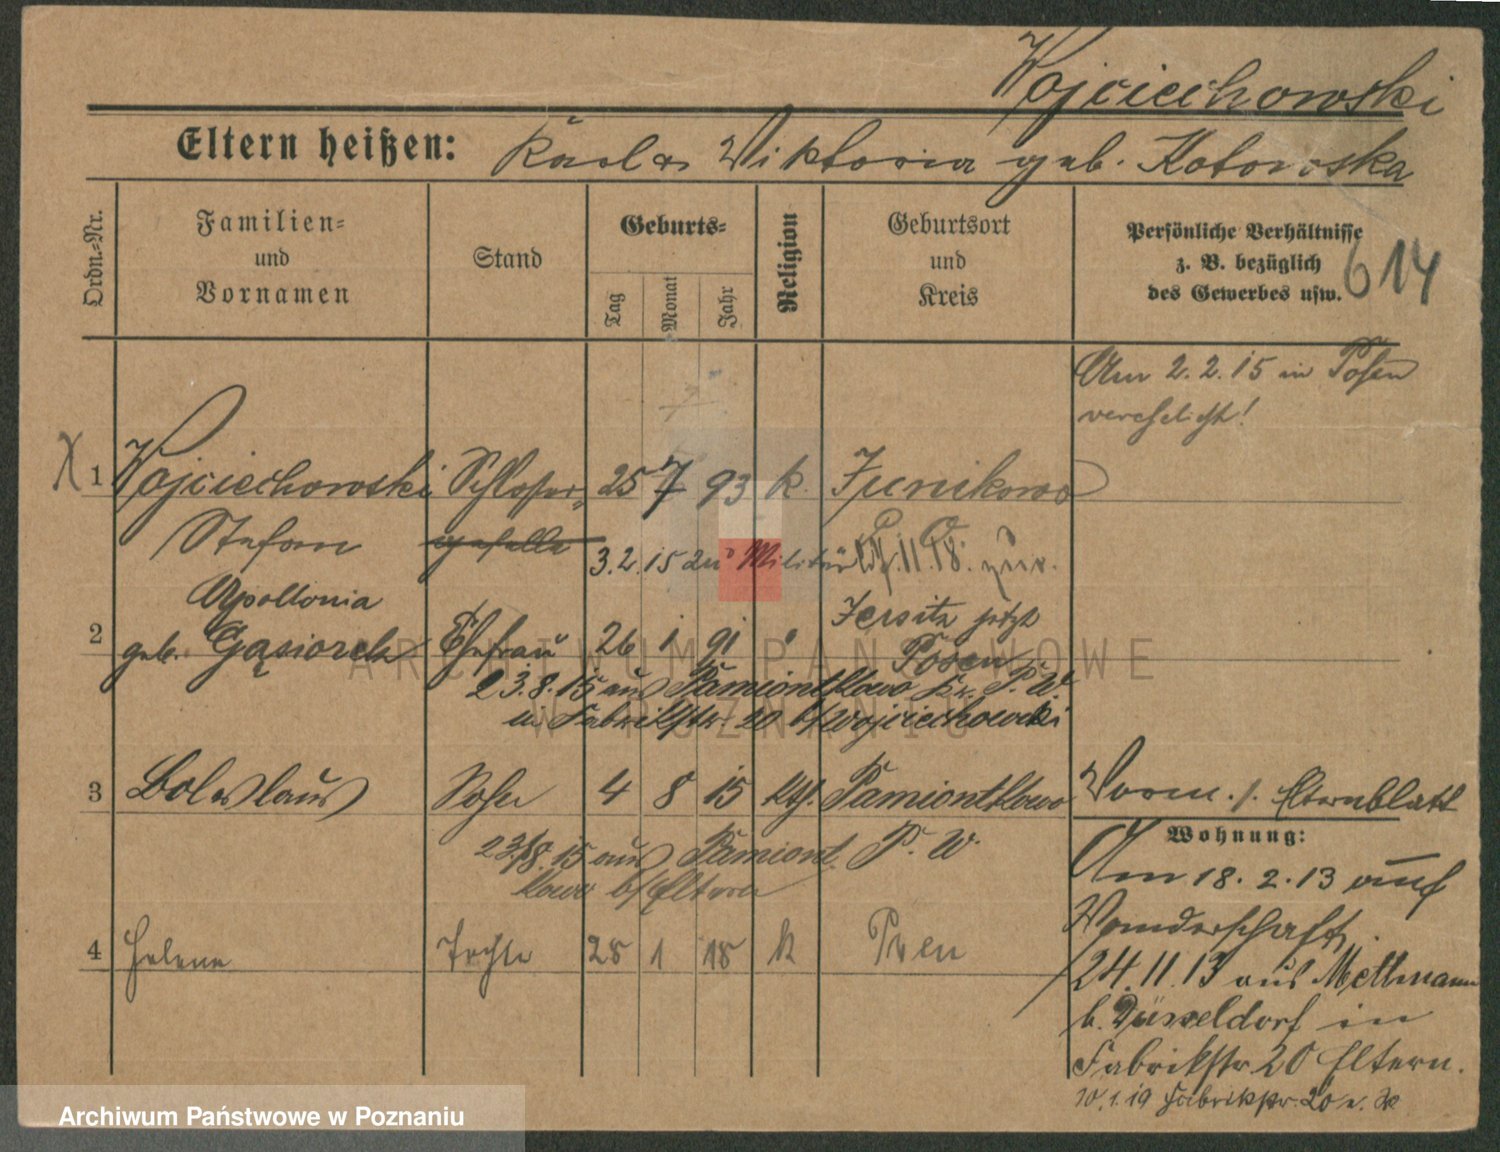 Wojciechowski
Eltern heißen: Karl u. Wiktoria geb. Kotowska
Ordn.-Nr.
Familien-
und
Vornamen
Stand
Geburts-
Tag
Monat
Jahr
Religion
Geburtsort
und
Kreis
Persönliche Verhältnisse
z. B. bezüglich
des Gewerbes usw.
614
Am 2.2.15 in Posen
verehelicht!
X 1 Wojciechowski Schlosser- 25 7 93 k. Junikowo
Stefan geselle
3.2.15 zu Militär 11.18. zur.
Apollonia
2 geb. Gąsiorek Ehefrau 26 1 91 Jersitz jetzt
Posen
23.8.15 aus Pamiontkowo Kr. P. W.
in Fabrikstr. 20 b/Wojciechowski
3 Boleslaus Sohn 4 8 15 kth. Pamiontkowo
P. W.
23.8.15 aus Pamiont
kowo b/Eltern
4 Helene Tochter 28 1 18 k Posen
Vorm. s. Elternblatt
Wohnung:
Am 18.2.13 auf
Wanderschaft.
24.11.13 aus Mettmann
b. Düsseldorf in
Fabrikstr. 20 Eltern.
10.1.19 Fabrikstr. 20
ARCHIWUM PAŃSTWOWE
W POZNANIU
Archiwum Państwowe w Poznaniu